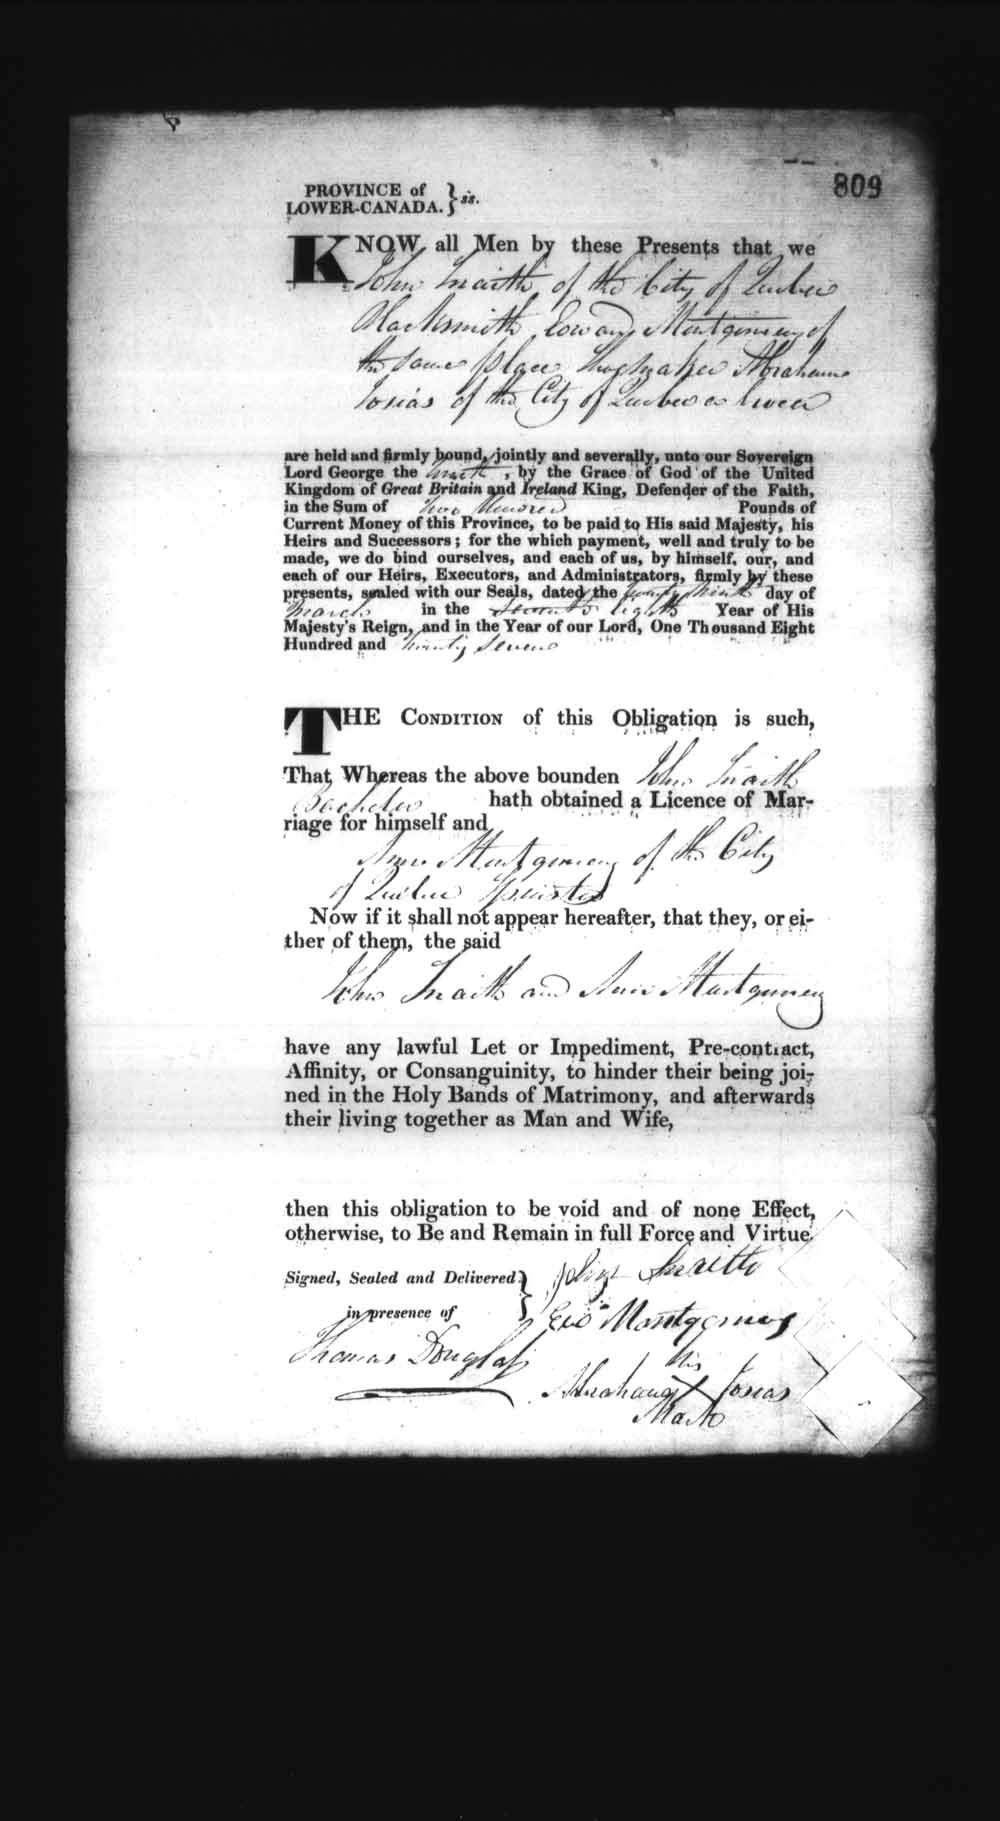 809
PROVINCE of
LOWER-CANADA. } ss.
KNOW all Men by these Presents that we
John Snaith of the City of Quebec
Blacksmith Edward Montgomery of
the same place Shoemaker Abraham
Josias of the City of Quebec
are held and firmly bound, jointly and severally, unto our Sovereign
Lord George the fourth, by the Grace of God of the United
Kingdom of Great Britain and Ireland King, Defender of the Faith,
in the Sum of Two Hundred Pounds of
Current Money of this Province, to be paid to His said Majesty, his
Heirs and Successors; for the which payment, well and truly to be
made, we do bind ourselves, and each of us, by himself, our, and
each of our Heirs, Executors, and Administrators, firmly by these
presents, sealed with our Seals, dated the twenty ninth day of
March in the eighth Year of His
Majesty's Reign, and in the Year of our Lord, One Thousand Eight
Hundred and twenty seven
THE CONDITION of this Obligation is such,
That Whereas the above bounden John Snaith
Bachelor hath obtained a Licence of Mar-
riage for himself and
Ann Montgomery of the City
of Quebec Spinster
Now if it shall not appear hereafter, that they, or ei-
ther of them, the said
John Snaith and Ann Montgomery
have any lawful Let or Impediment, Pre-contract,
Affinity, or Consanguinity, to hinder their being joi-
ned in the Holy Bands of Matrimony, and afterwards
their living together as Man and Wife,
then this obligation to be void and of none Effect,
otherwise, to Be and Remain in full Force and Virtue.
Signed, Sealed and Delivered } John Snaith
in presence of Montgomery
Thomas Douglas his
Abraham X Josias
Mark